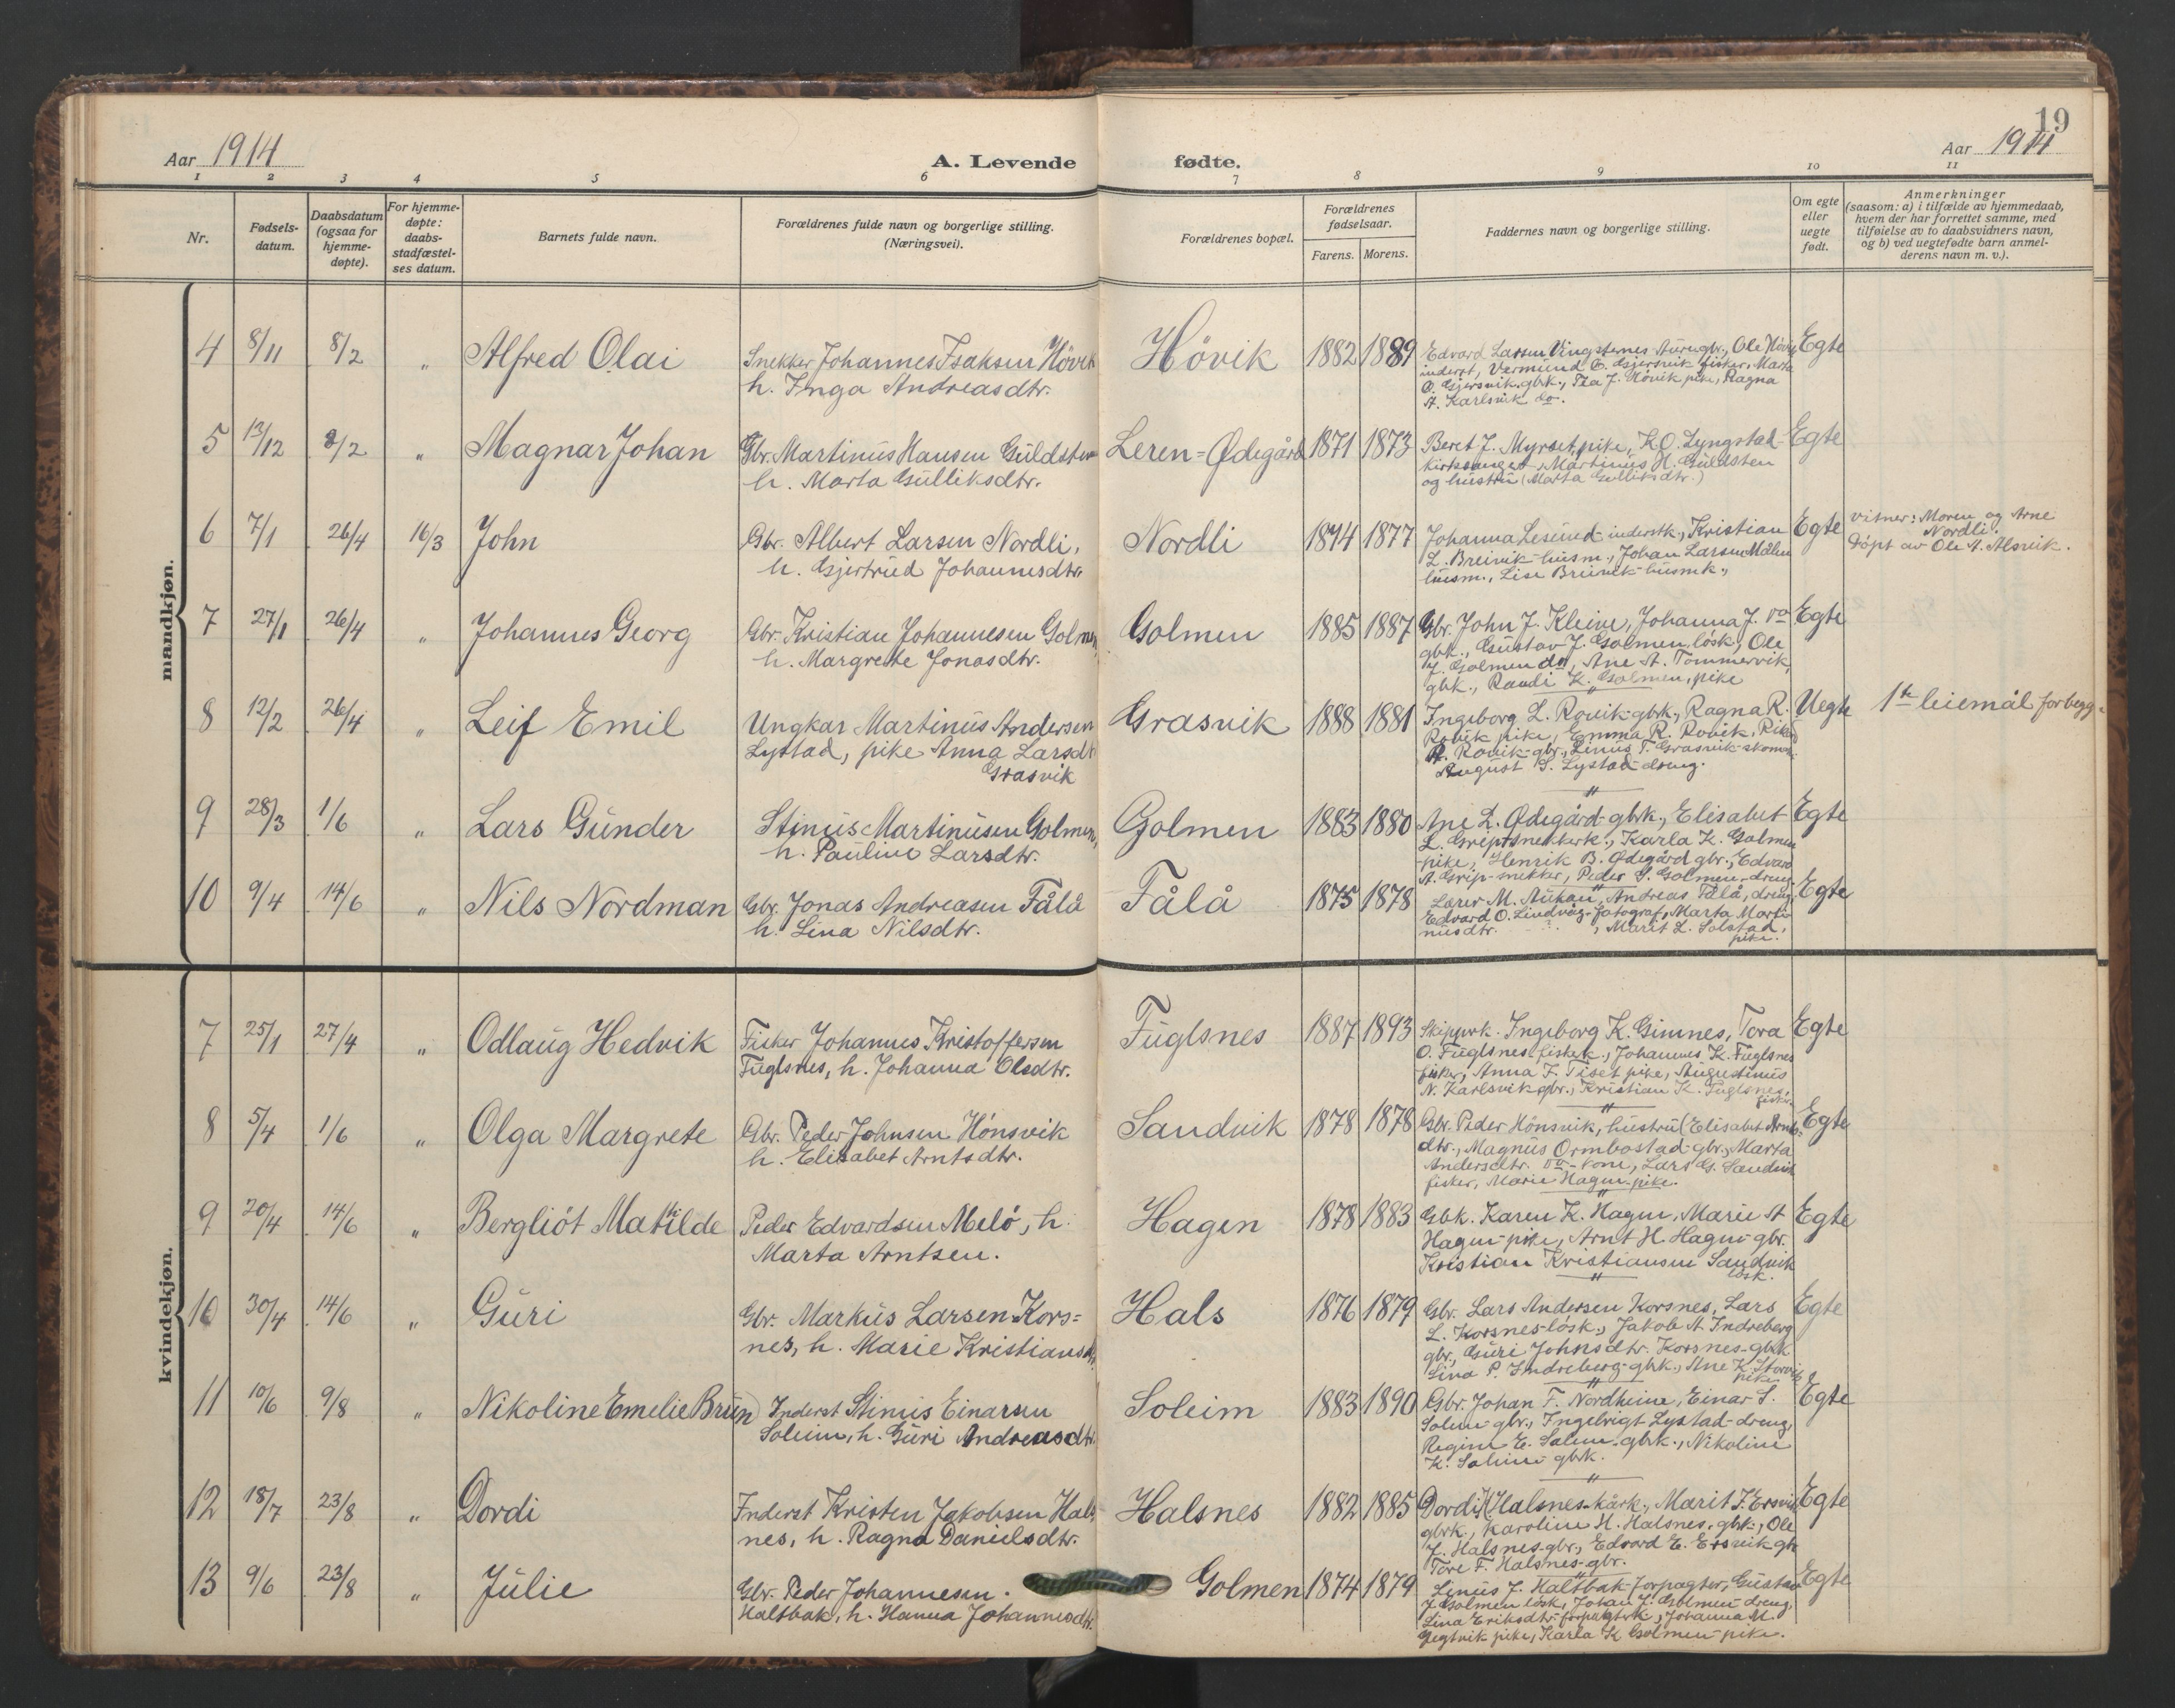 19
Aar 1914
A. Levende fødte.
Aar 1914
1 2 3 4 5 6 7 8 9 10 11
Nr.
Fødsels-
datum.
Daabsdatum
(ogsaa for
hjemme-
døpte).
For hjemme-
døpte:
daabs-
stadfæstel-
ses datum.
Barnets fulde navn.
Forældrenes fulde navn og borgerlige stilling.
(Næringsvei).
Forældrenes bopæl.
Forældrenes
fødselsaar.
Farens. Morens.
Faddernes navn og borgerlige stilling.
Om egte
eller
uegte
født.
Anmerkninger
(saasom: a) i tilfælde av hjemmedaab,
hvem der har forrettet samme, med
tilføielse av to daabsvidners navn,
og b) ved uegtefødte barn anmel-
derens navn m. v.).
mandkjøn.
4 8/11 8/2 " Alfred Olai
Snekker Johannes Isaksen Hövik
h. Inga Andreasdtr.
Hövik 1882 1889
Edvard Larsen Vingsternes Aure gbr., Ole Hövik
inderst, Vermund O. Gjersvik fisker, Marta
O. Gjersvik gbk., Thea J. Hövik pike, Ragna
A. Karlsvik do.
Egte
5 13/12 8/2 " Magnar Johan
Gbr. Martinus Hansen Guldsten
h. Marta Gulliksdtr.
Leren=Ødegård 1871 1873
Beret J. Myrset pike, K. O. Lyngstad
kirksanger, Martinus H. Guldsten
og hustru (Marta Gulliksdtr.)
Egte
6 7/1 26/4 16/3 John
Gbr. Albert Larsen Nordli,
h. Gjertrud Johannesdtr.
Nordli 1874 1877
Johanna Lesund inderstk., Kristian
L. Breivik husm., Johan Larsen Målen
husm., Lise Breivik husmk.,
Egte
vitner: Moren og Arne
Nordli.
Döpt av Ole A. Alsvik.
7 27/1 26/4 " Johannes Georg
Gbr. Kristian Johannesen Golmen,
h. Margrete Jonasdtr.
Golmen 1885 1887
Gbr. John J. Kleive, Johanna J. do
gbk., Gustav J. Golmen lösk, Ole
J. Golmen do, Ane A. Tömmervik
gbk., Randi K. Golmen, pike
Egte
8 12/2 26/4 " Leif Emil
Ungkar Martinus Andersen
Lystad, pike Anna Larsdtr
Grasvik
Grasvik 1888 1881
Ingeborg L. Rovik gbrk., Ragna R.
Rovik pike, Emma R. Rovik, Rikard
R. Rovik gbr., Linus T. Grasvik skom.
August S. Lystad dreng.
Uegte
1ste leiemål for begge.
9 28/3 1/6 " Lars Gunder
Stinus Martinusen Golmen,
h. Pauline Larsdtr.
Golmen 1883 1880
Ane L. Ødegård gbrk., Elisabet
L. Grip snekkerk., Karla K. Golmen
pike, Henrik B. Ødegård gbr., Edvard
A. Grip snekker, Peder S. Golmen dreng
Egte
10 9/4 14/6 " Nils Nordman
Gbr. Jonas Andreasen Fålå
h. Lina Nilsdtr.
Fålå 1875 1878
Lærer M. Aukan, Andreas Fålå, dreng,
Edvard O. Lindvåg fotograf, Marta Marti-
nusdtr. , Marit L. Solstad,
pike.
Egte
kvindekjøn.
7 25/1 27/4 " Odlaug Hedvik
Fisker Johannes Kristoffersen
Fuglsnes, h. Johanna Olsdtr.
Fuglsnes 1887 1893
Skipperk. Ingeborg K. Gimnes, Tora
O. Fuglsnes fiskerk., Johannes K. Fuglsnes
fisker, Anna F. Tiset pike, Augustinus
N. Karlsvik gbr., Kristian K. Fuglsnes,
fisker
Egte
8 5/4 1/6 " Olga Margrete
Gbr. Peder Johnsen Hönsvik
h. Elisabet Arntsdtr.
Sandvik 1878 1878
Gbr. Peder Hönsvik, hustru (Elisabet Arnts-
dtr., Magnus Ormbostad gbr., Marta
Andersdtr. do kone, Lars G. Sandvik
fisker, Marie Hagen pike.
Egte
9 20/4 14/6 " Bergliót Matilde
Peder Edvardsen Melö, h.
Marta Arntsen.
Hagen 1878 1883
Gbk. Karen K. Hagen, Marie A
Hagen pike, Arnt H. Hagen gbr.
Kristian Kristiansen Sandvik
lösk.
Egte
10 30/4 14/6 " Guri
Gbr. Markus Larsen Kors=
nes, h. Marie Kristiansdtr
Hals 1876 1879
Gbr. Lars Andersen Korsnes, Lars
L. Korsnes lösk., Jakob A. Indreberg
gbr., Guri Johnsdtr. Korsnes gbk
Lina P. Indreberg gbk., Ane K. Storvik
pike
Egte
11 10/6 9/8 " Nikoline Emelie Brun
Inderst Stinus Einarsen
Soleim, h. Guri Andreasdtr.
Soleim 1883 1890
Gbr. Johan F. Nordheim, Einar S.
Soleim gbr., Ingebrigt Lystad dreng,
Regine E. Salem gbrk., Nikoline
K. Soleim gbk.
Egte
12 18/7 23/8 " Dordi
Inderst Kristen Jakobsen Hals
nes, h. Ragna Danielsdtr.
Halsnes 1882 1885
Dordi Halsnes kårk., Marit J. Ersvik
gbrk., Karoline H. Halsnes, gbk., Ole
J. Halsnes gbr., Edvard E. Ersvik gbr
Tore F. Halsnes gbr.
Egte
13 9/6 23/8 " Julie
Gbr. Peder Johannesen
Haltbak, h. Hanna Johannesdtr.
Golmen 1874 1879
Linus J. Haltbak forpagter, Gustav
J Golmen lösk, Johan J. Golmen dreng,
Lina Eriksdtr. forpagterk., Johanna M.
pike, Karla K Golmen pike.
Egte